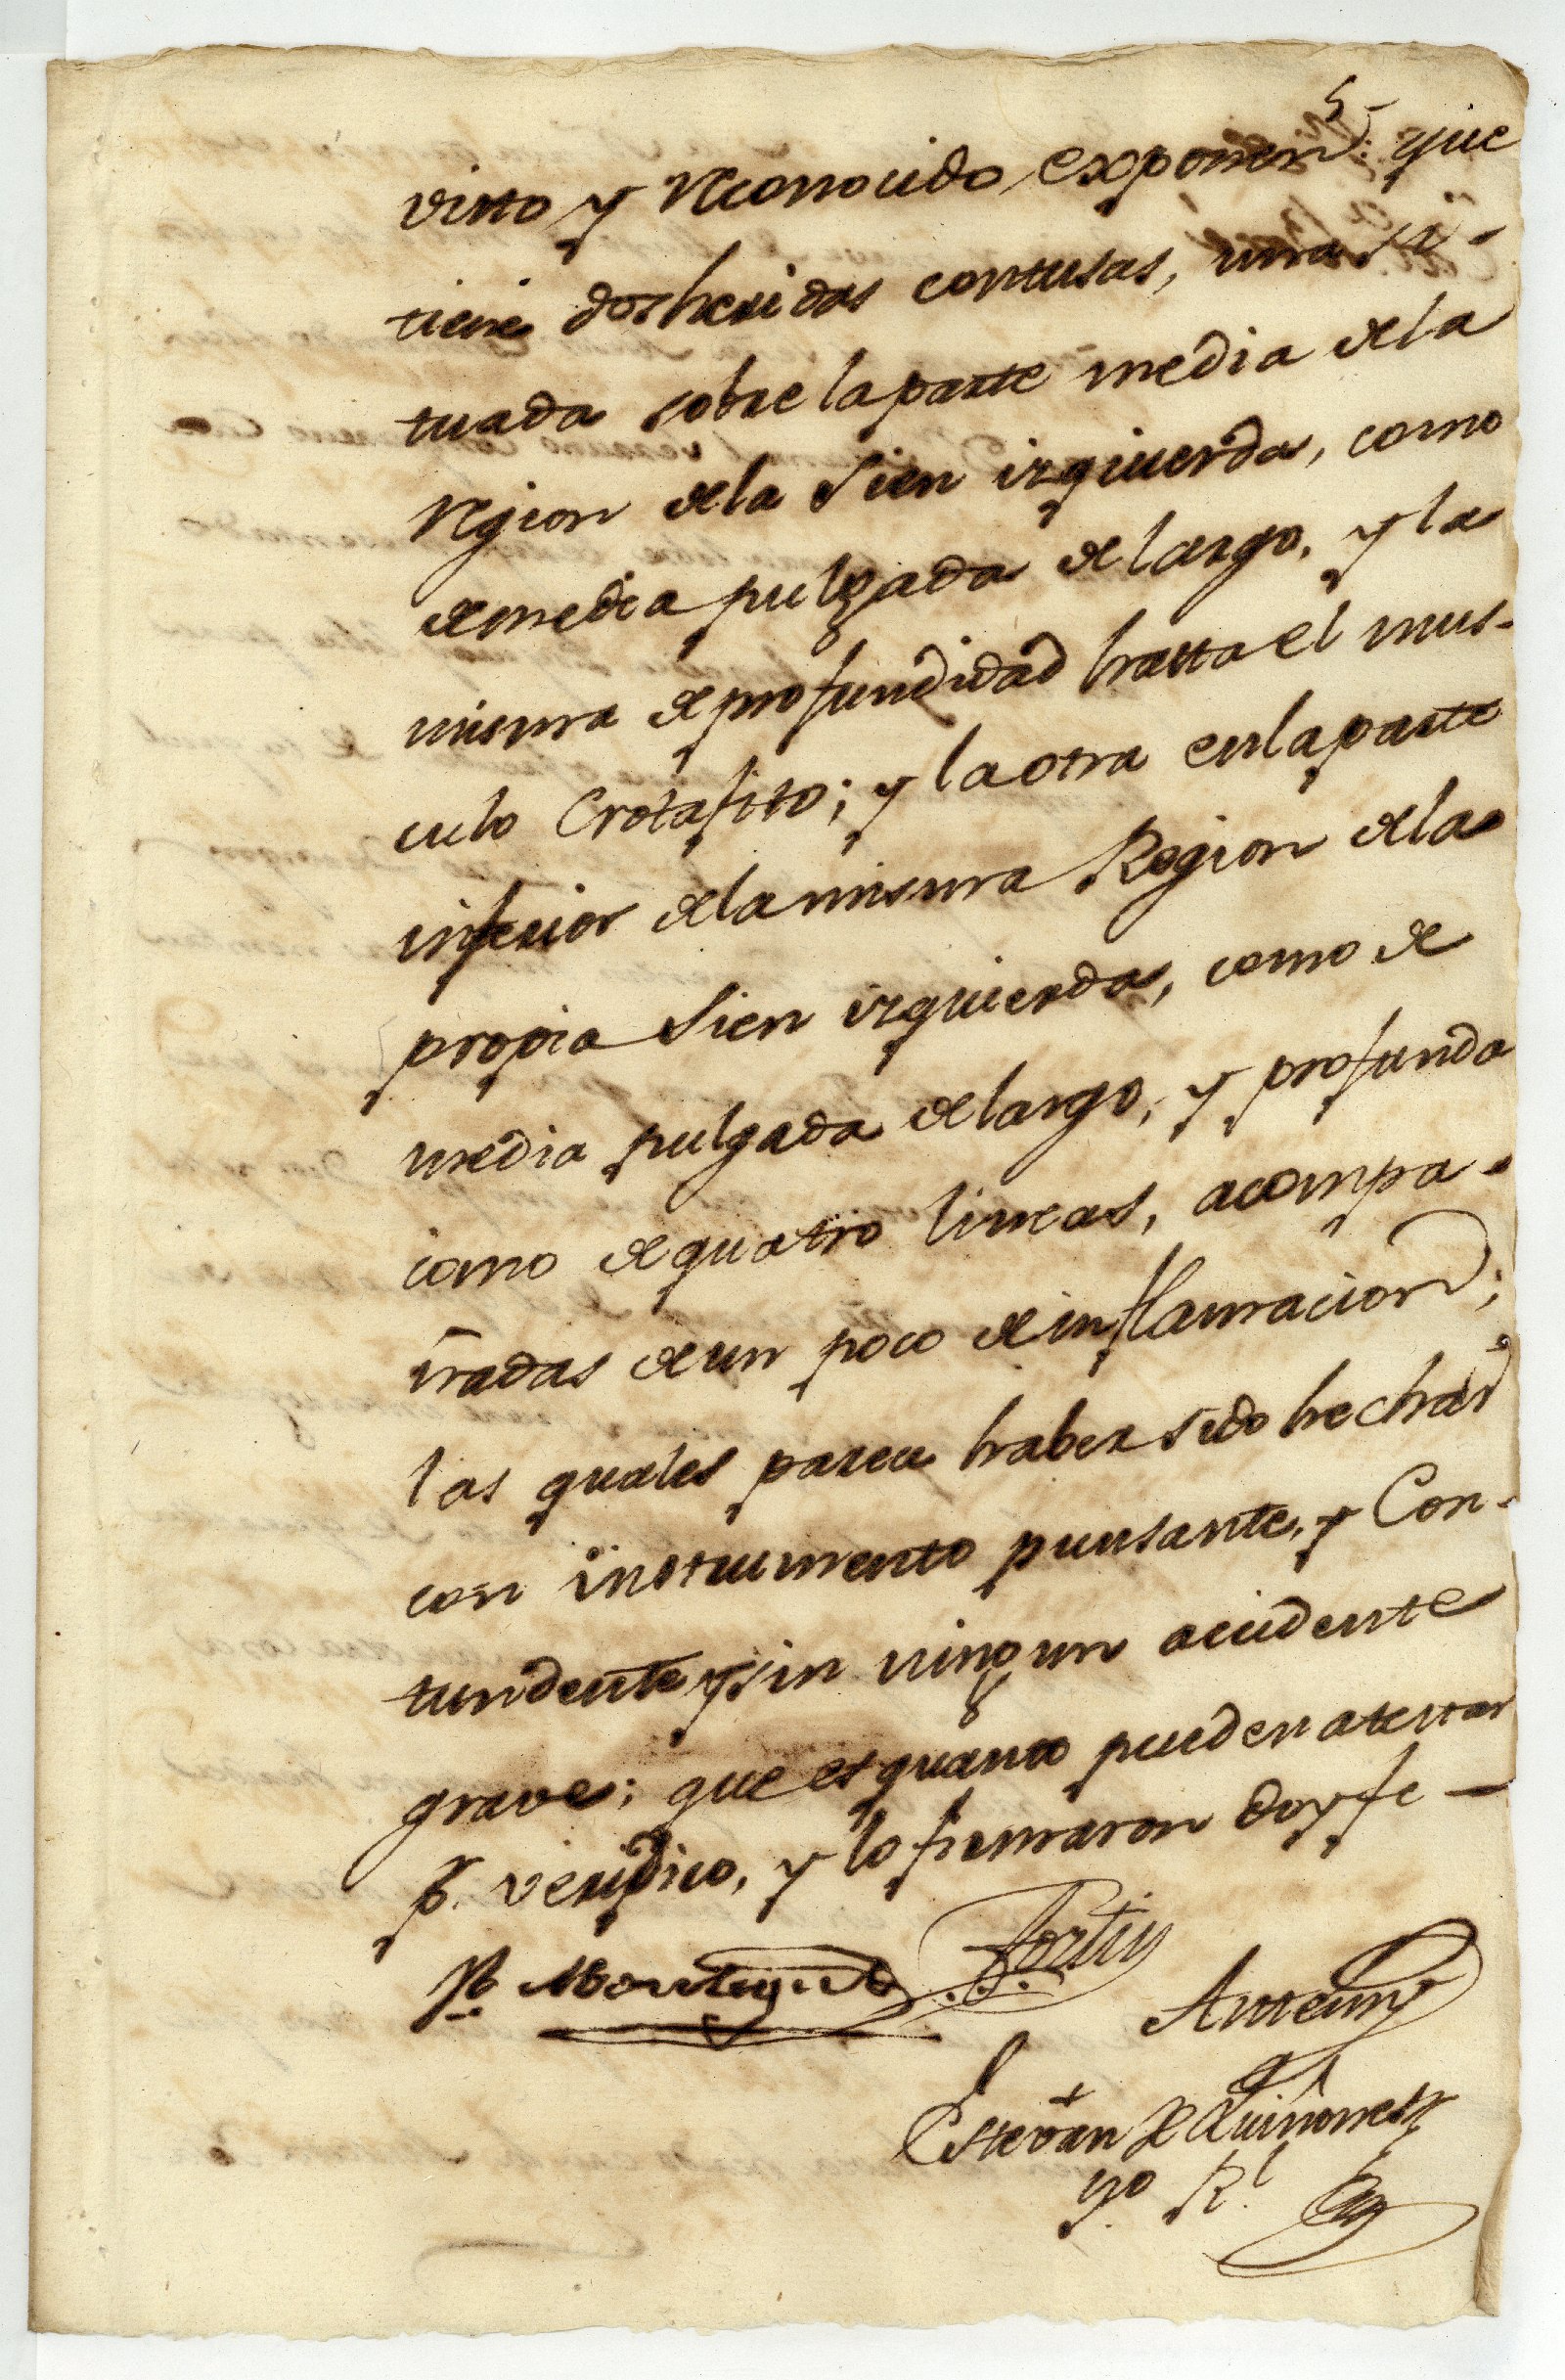 5
visto y reconocido, exponen: que
tiene dos heridas contusas, una si-
tuada sobre la parte media de la
region de la Sien izquierda, como
de media pulgada de largo, y la
misma de profundidad hasta el mus-
culo Crotafito; y la otra en la parte
inferior de la misma Region de la
propia Sien izquierda, como de
media pulgada de largo, y profunda
como de quatro lineas, acompa-
ñadas de un poco de inflamacion;
las quales parece haber sido hechas
con instrumento punsante, y Con-
tundente y sin ningun acidente
grave; que es quanto pueden atestar
pr. veridico, y lo firmaron doy fe —
Montegut Fortin
Antemy
Estevan de Quiñones
no Rl